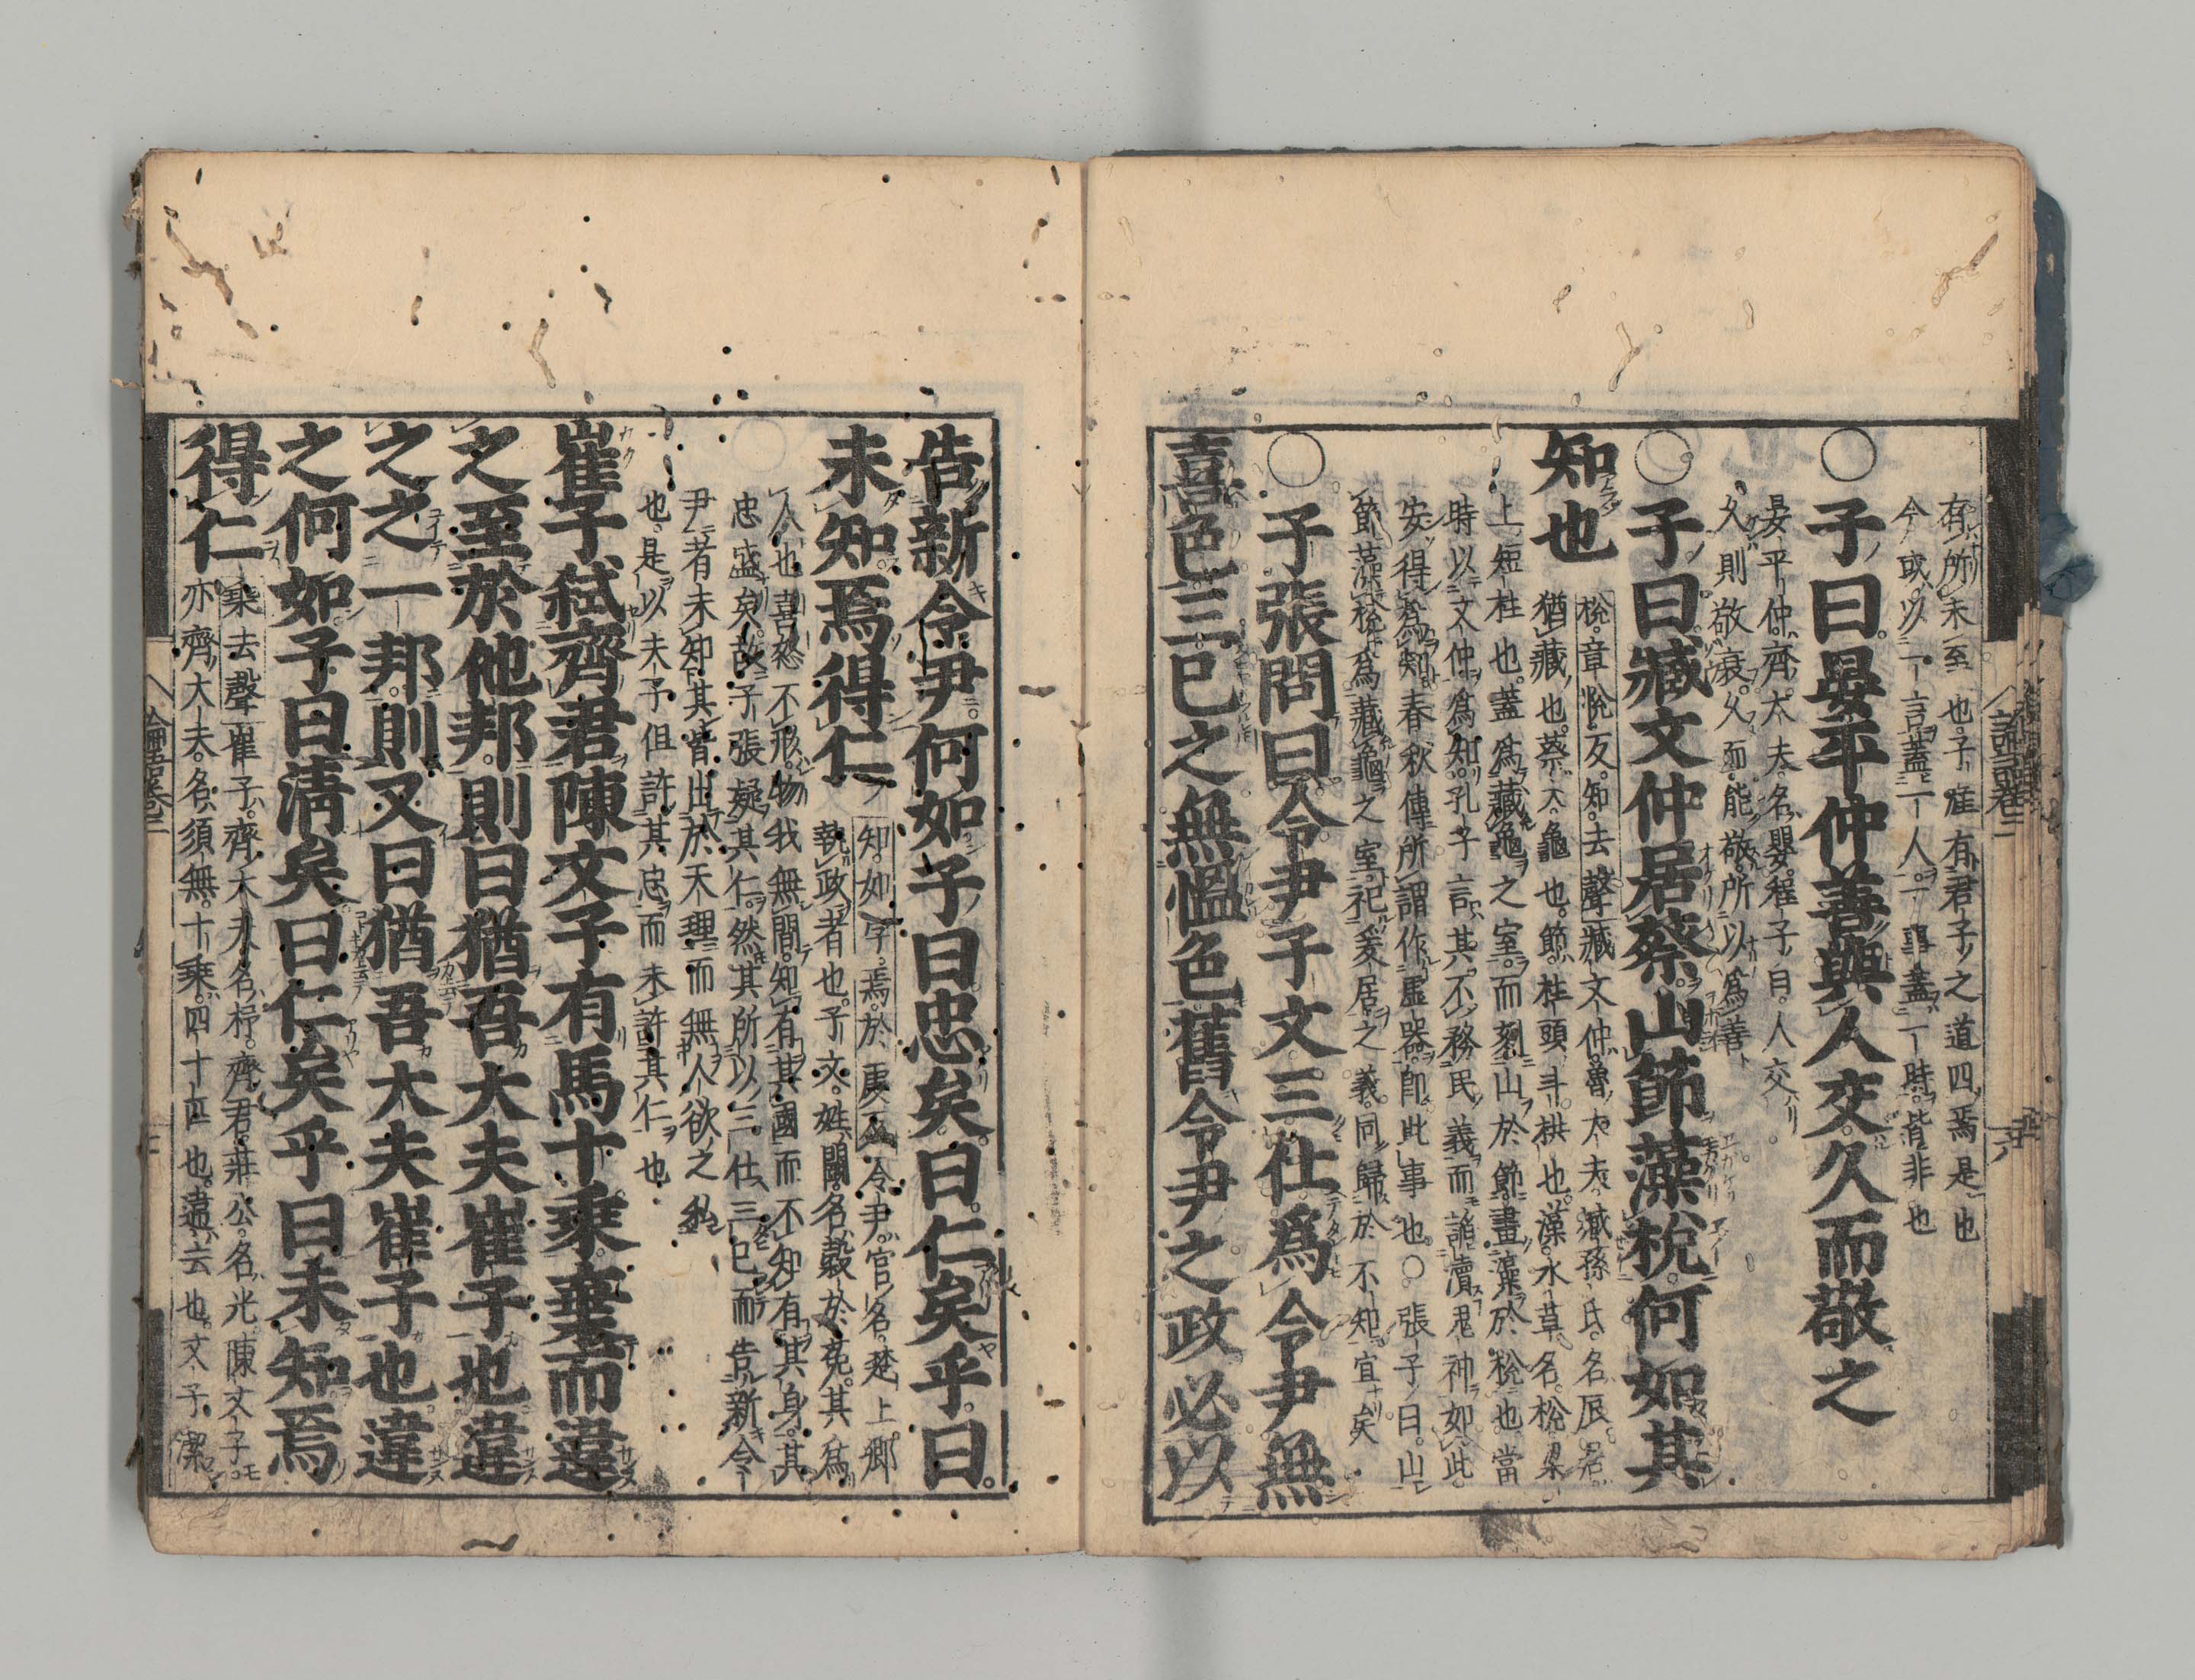 有所未至也子產有君子之道四焉是也
今或以一言蓋一人一事蓋一時皆非也
○子曰晏平仲善與人交久而敬之
晏平仲齊大夫名嬰程子曰人交
久則敬衰久而能敬所以為善
○子曰臧文仲居蔡山節藻梲何如其
知也
梲章悅反知去聲臧文仲魯大夫臧孫氏名辰居
猶藏也蔡大龜也節柱頭斗栱也藻水草名梲梁
上短柱也蓋為藏龜之室而刻山於節畫藻於梲也當
時以文仲為知孔子言其不務民義而諂瀆鬼神如此
安得為知春秋傳所謂作虛器即此事也○張子曰山
節藻梲為藏龜之室祀爰居之義同歸於不知宜矣
○子張問曰令尹子文三仕爲令尹無
喜色三已之無慍色舊令尹之政必以
告新令尹何如子曰忠矣曰仁矣乎曰
未知焉得仁
知如字焉於虔反令尹官名楚上卿
執政者也子文姓鬪名穀於菟其為
人也喜怒不形物我無間知有其國而不知有其身其
忠盛矣故子張疑其仁然其所以三仕三已而告新令
尹者未知其皆出於天理而無人欲之私
也是以夫子但許其忠而未許其仁也
崔子弒齊君陳文子有馬十乘棄而違
之至於他邦則曰猶吾大夫崔子也違
之之一邦則又曰猶吾大夫崔子也違
之何如子曰淸矣曰仁矣乎曰未知焉
得仁
乘去聲崔子齊大夫名杼齊君莊公名光陳文子
亦齊大夫名須無十乘四十匹也違去也文子潔
論語卷三